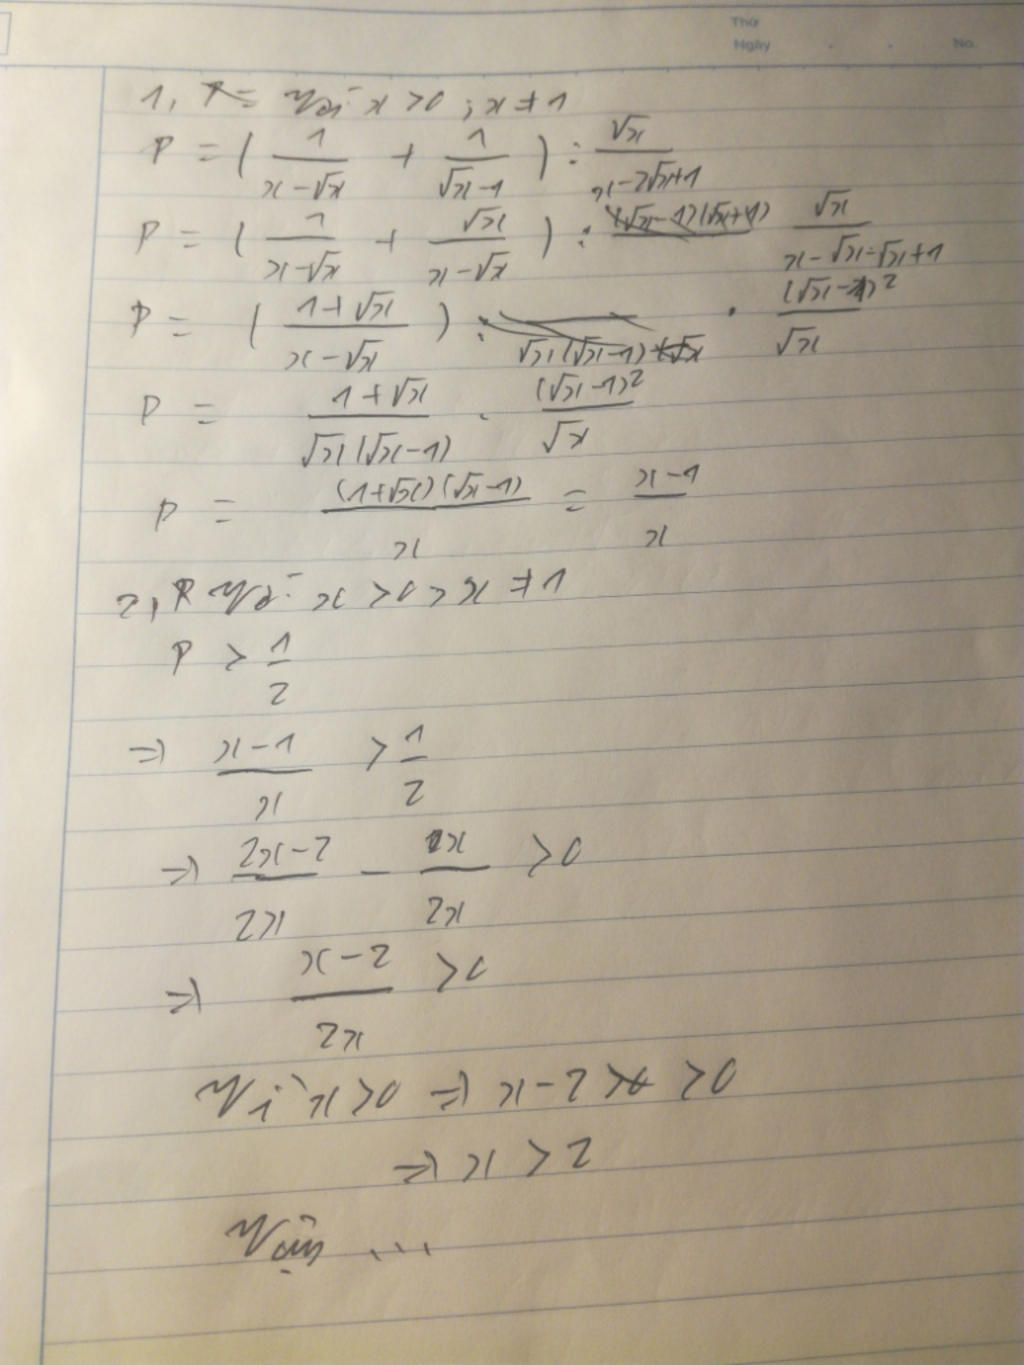 Thứ
Ngày . . No.
1, P = Với x > 0 ; x ≠ 1
P = ( 1/(x-√x) + 1/(√x-1) ) : √x/(x-2√x+1)
P = ( 1/(x-√x) + √x/(x-√x) ) : (√x-1)(√x+1) √x/(x-√x-√x+1)
P = ( (1+√x)/(x-√x) ) : √x(√x-1) . (√x-1)²/√x
P = (1+√x)/(√x(√x-1)) . (√x-1)²/√x
P = (1+√x)(√x-1)/x = (x-1)/x
2, P Với x > 0 > x ≠ 1
P > 1/2
⇒ (x-1)/x > 1/2
⇒ (2x-2)/2x - x/2x > 0
⇒ (x-2)/2x > 0
Vì x > 0 ⇒ x-2 > 0
⇒ x > 2
Vậy ...